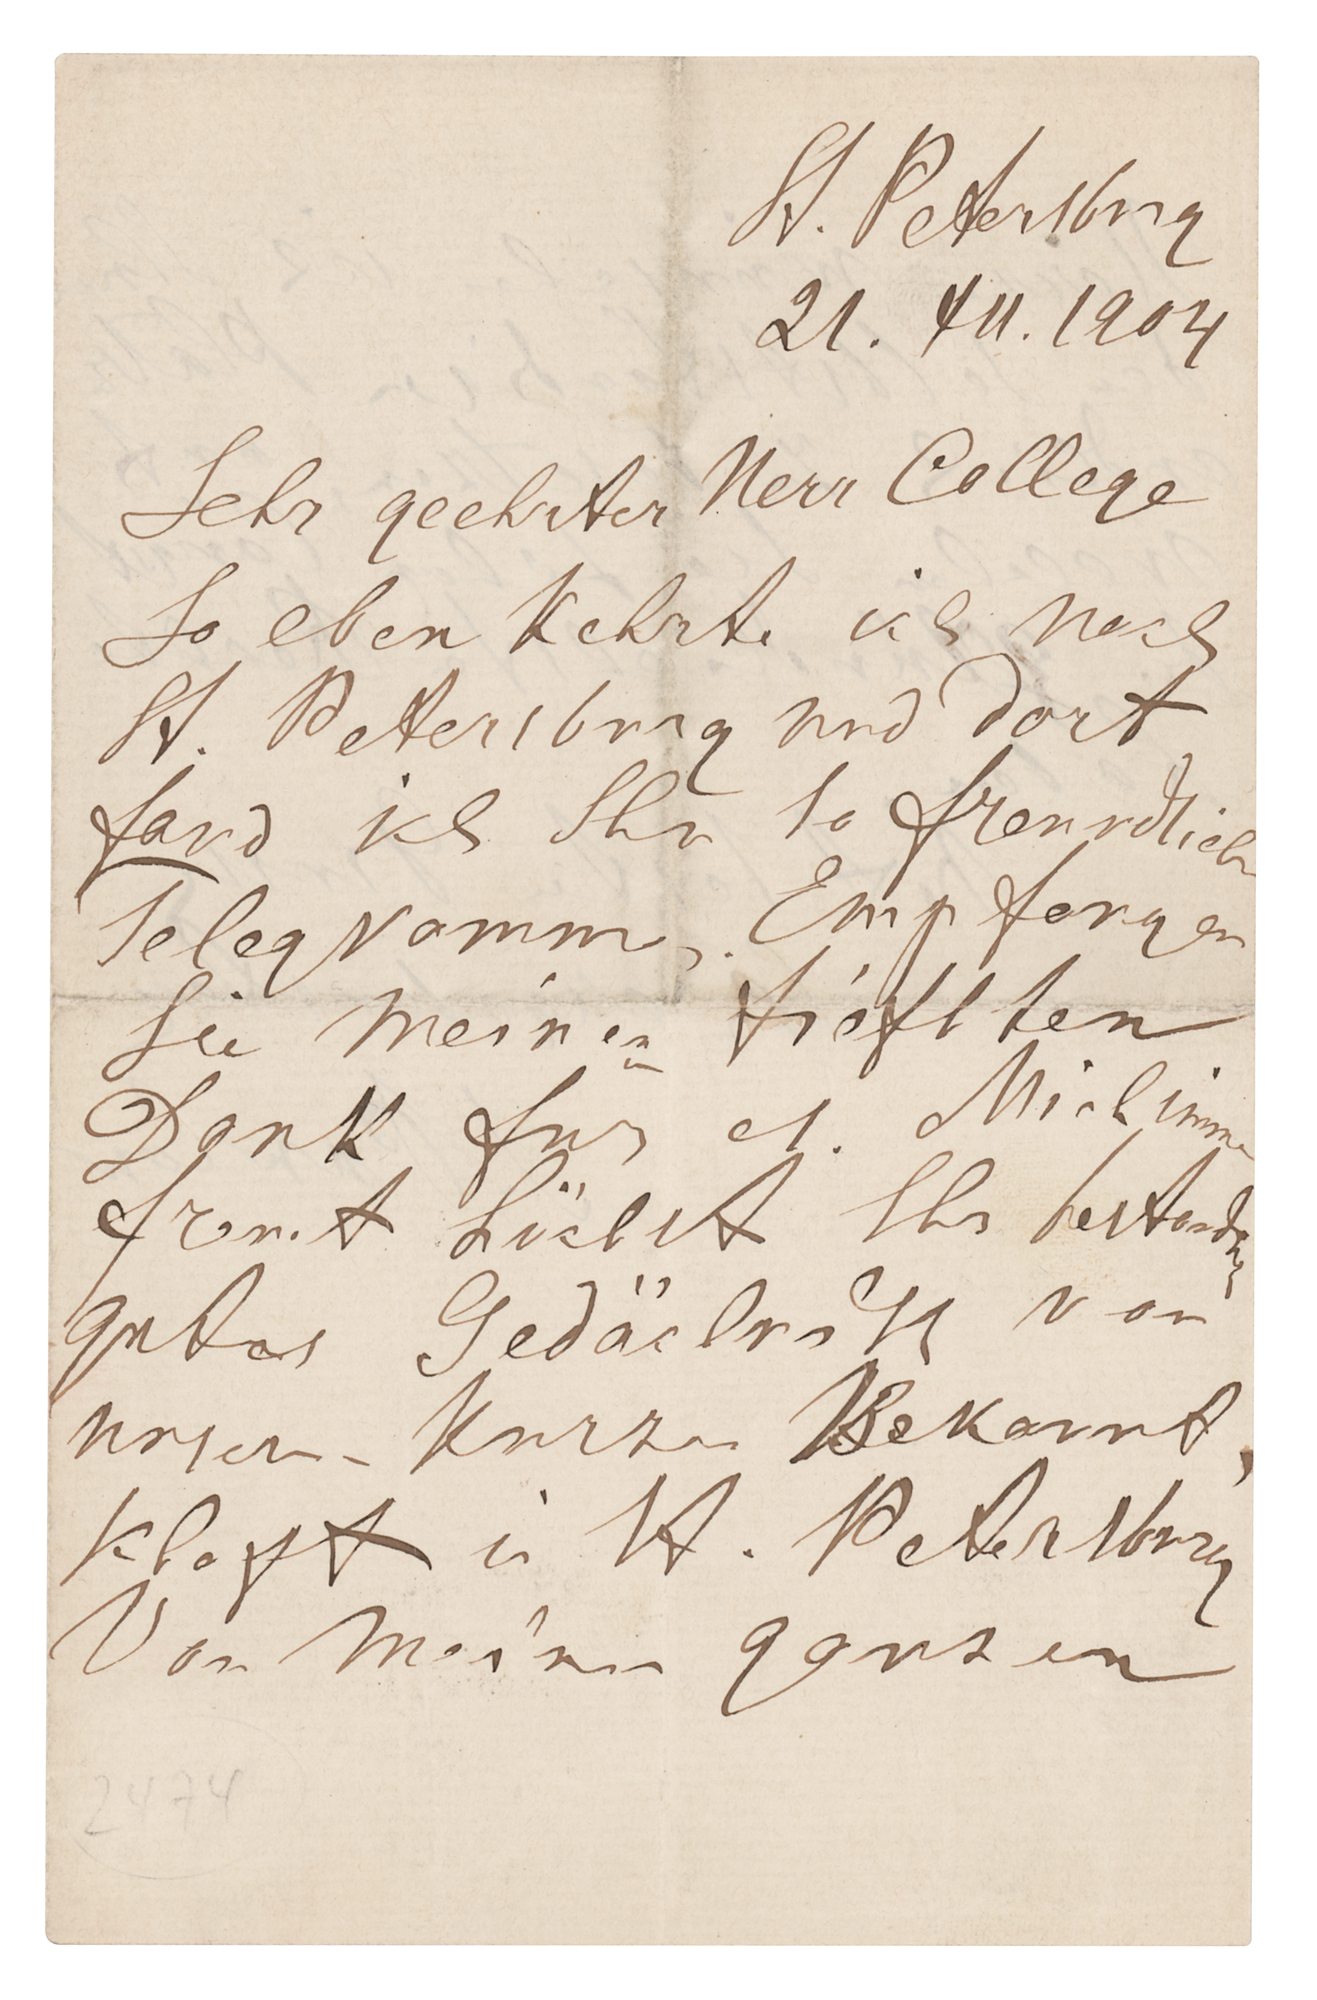 St. Petersburg
21. XII. 1904
Sehr geehrter Herr College
So eben kehrte ich nach
St. Petersburg und dort
fand ich Ihr so freundlich
Telegramm. Empfangen
Sie meinen tiefsten
Dank für es. Mich imm
freut höchst Ihr beständig
gutes Gedächniss von
unser kurzen Bekannt
schaft in St. Petersburg
Von meinen ganzen
2474